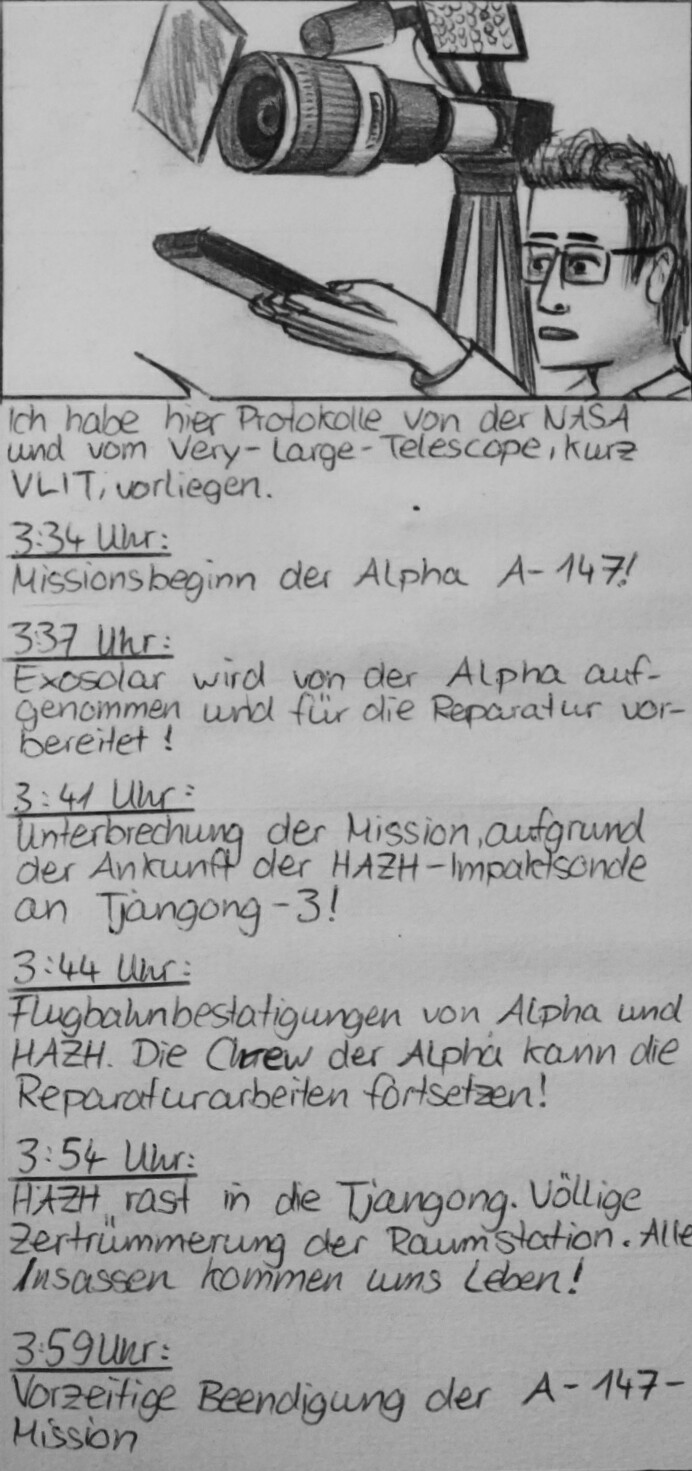 Ich habe hier Protokolle von der NASA
und vom Very-Large-Telescope, kurz
VLIT, vorliegen.
3:34 Uhr:
Missionsbeginn der Alpha A-147!
3:37 Uhr:
Exosolar wird von der Alpha auf-
genommen und für die Reparatur vor-
bereitet!
3:41 Uhr:
Unterbrechung der Mission, aufgrund
der Ankunft der HAZH-Impaktsonde
an Tjangong-3!
3:44 Uhr:
Flugbahnbestatigungen von Alpha und
HAZH. Die Crew der Alpha kann die
Reparaturarbeiten fortsetzen!
3:54 Uhr:
HAZH rast in die Tjangong. Völlige
Zertrümmerung der Raumstation. Alle
Insassen kommen ums Leben!
3:59 Uhr:
Vorzeitige Beendigung der A-147-
Mission